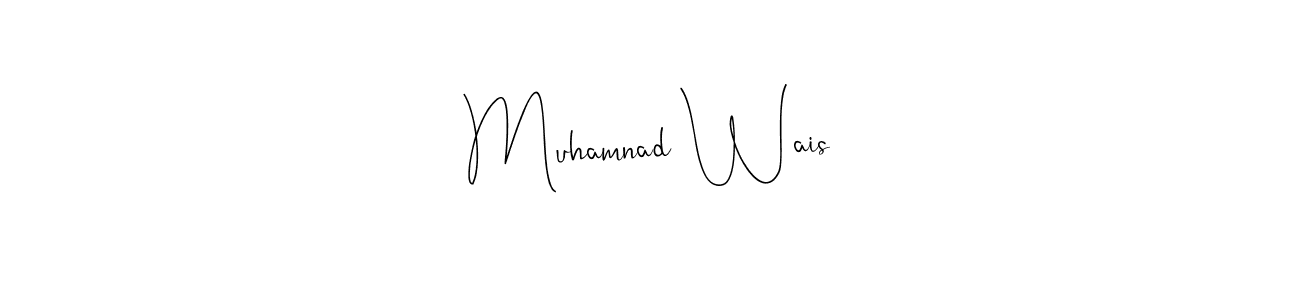 Muhamnad Wais